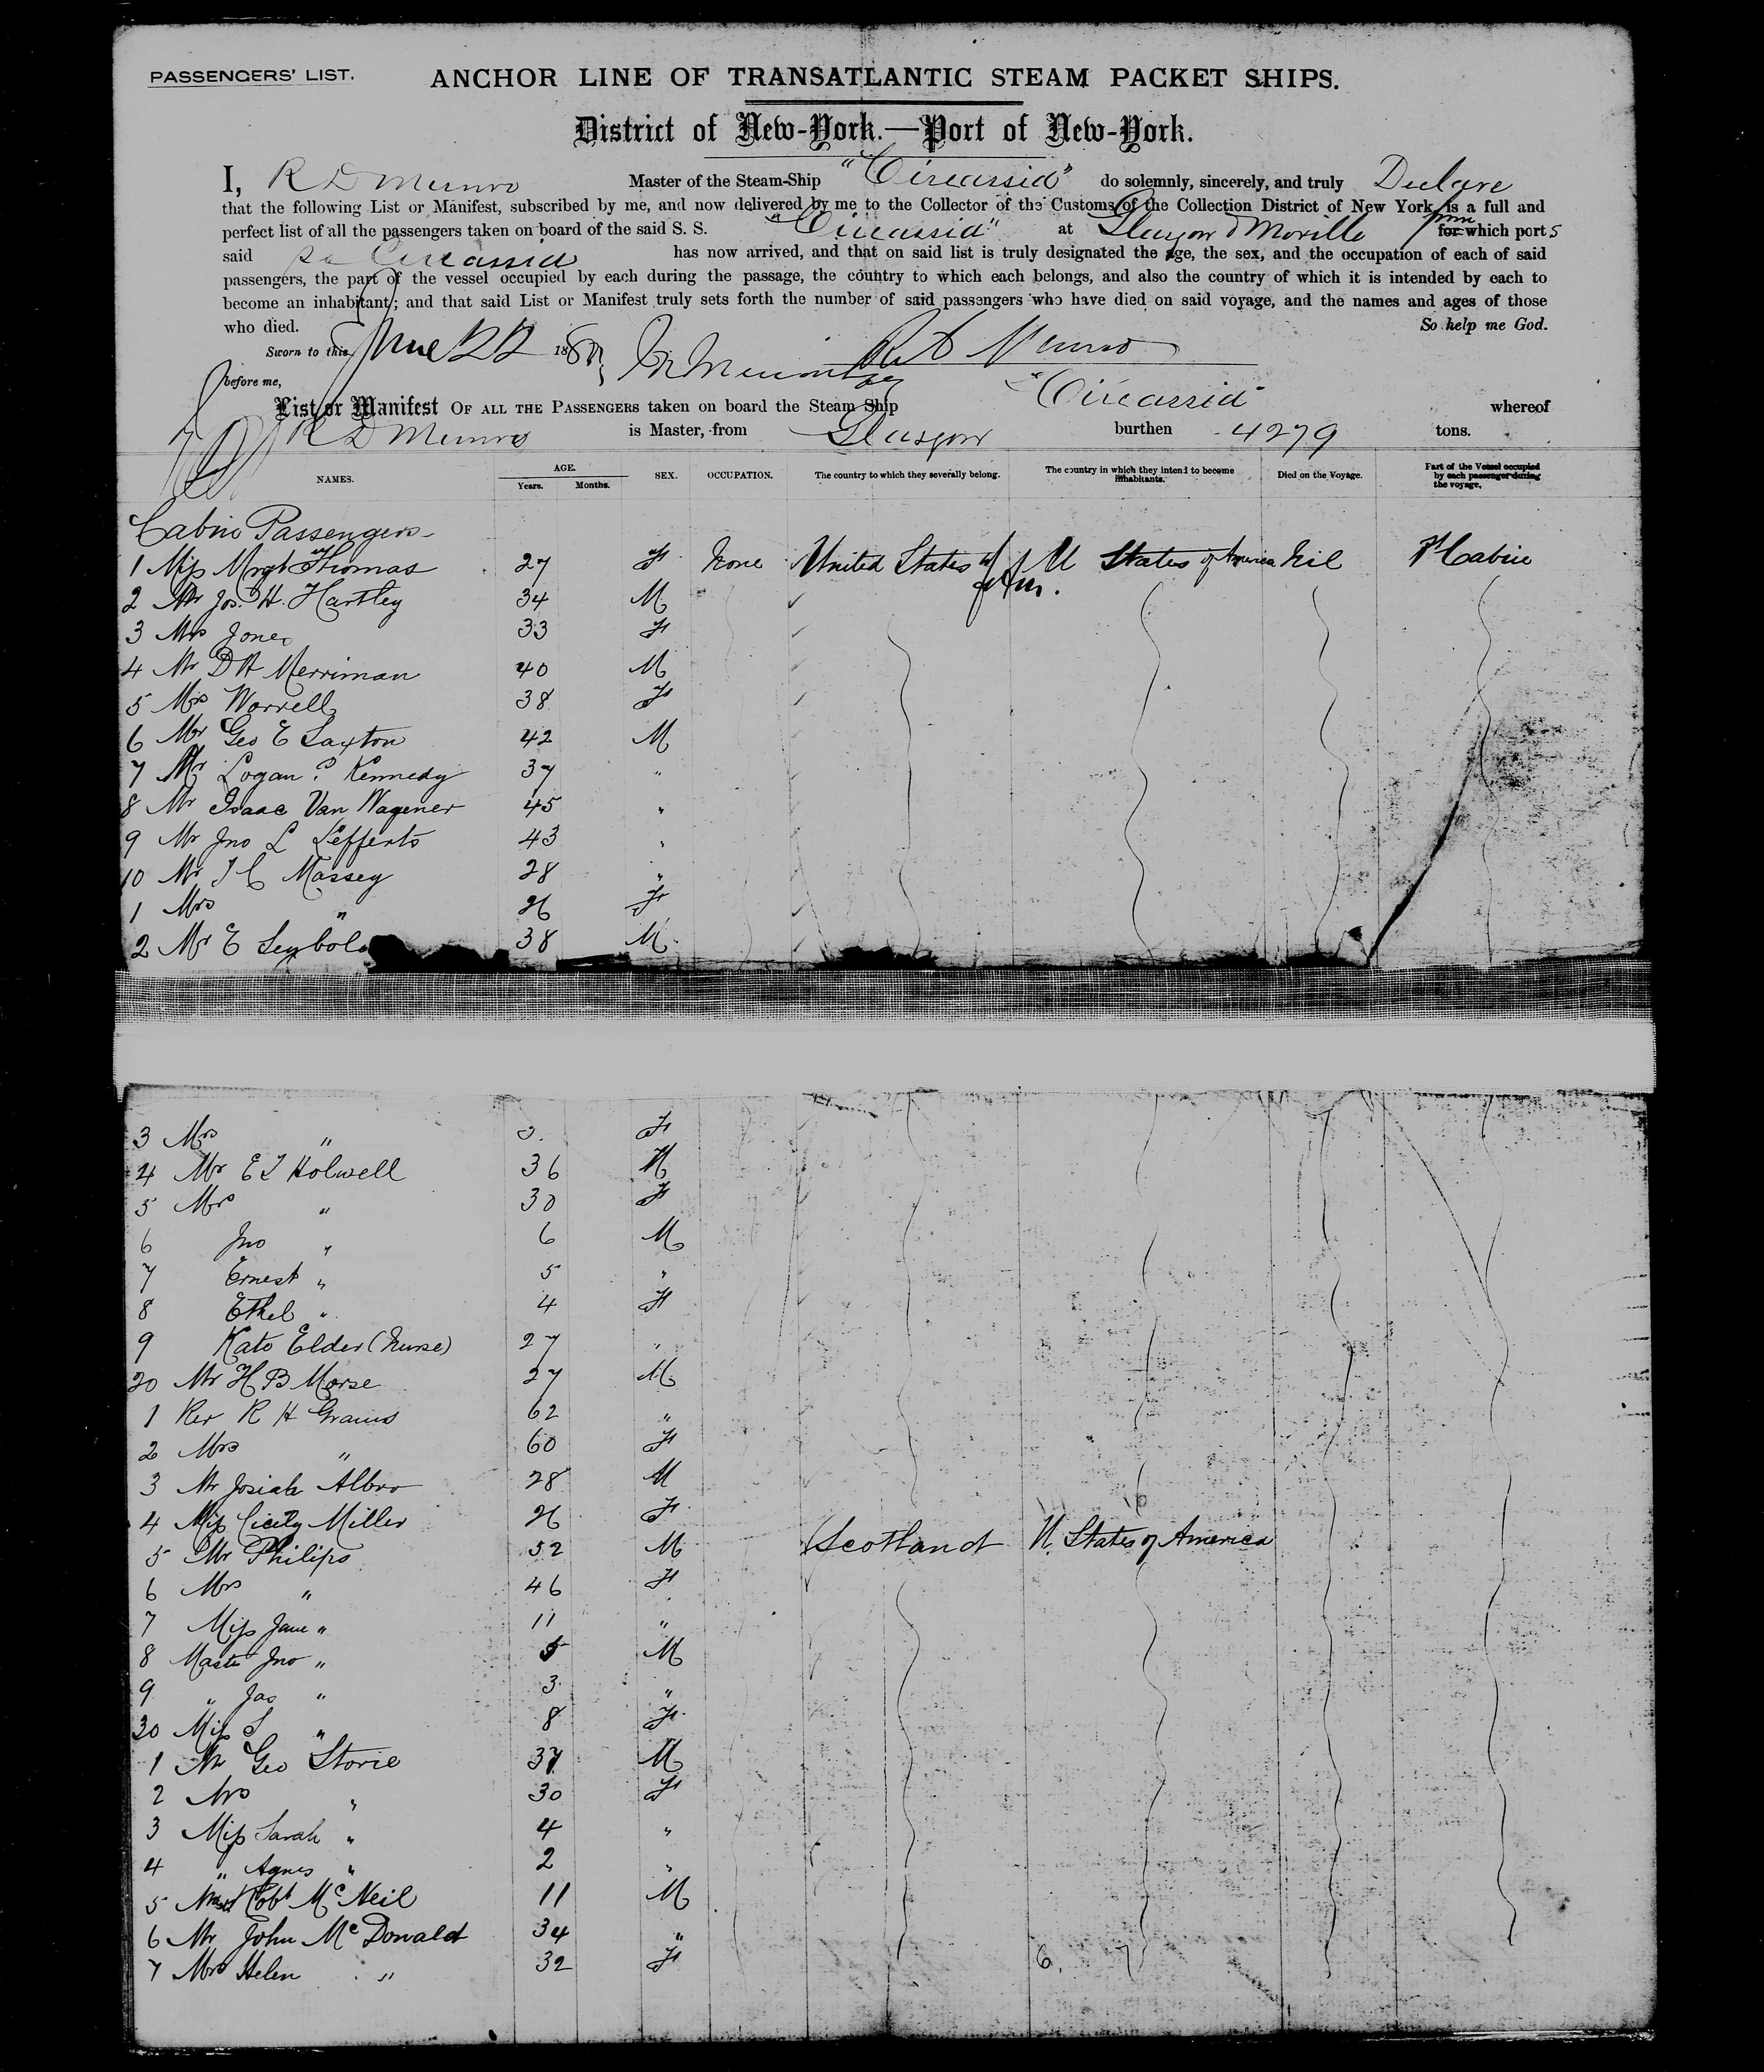 PASSENGERS' LIST.
ANCHOR LINE OF TRANSATLANTIC STEAM PACKET SHIPS.
District of New-York.—Port of New-York.
I, R D Munro Master of the Steam-Ship "Circassia" do solemnly, sincerely, and truly Declare
that the following List or Manifest, subscribed by me, and now delivered by me to the Collector of the Customs of the Collection District of New York, is a full and
perfect list of all the passengers taken on board of the said S. S. "Circassia" at Glasgow & Moville from for which ports
said S.S. Circassia has now arrived, and that on said list is truly designated the age, the sex, and the occupation of each of said
passengers, the part of the vessel occupied by each during the passage, the country to which each belongs, and also the country of which it is intended by each to
become an inhabitant; and that said List or Manifest truly sets forth the number of said passengers who have died on said voyage, and the names and ages of those
who died. So help me God.
Sworn to this June 22 18 R D Munro
before me,
List or Manifest OF ALL THE PASSENGERS taken on board the Steam Ship "Circassia" whereof
R D Munro is Master, from Glasgow burthen 4279 tons.
NAMES. AGE. Years. Months. SEX. OCCUPATION. The country to which they severally belong. The country in which they intend to become inhabitants. Died on the Voyage. Part of the Vessel occupied by each passenger during the voyage.
Cabin Passengers
1 Miss Mrgt Thomas 27 F None United States of Am. U States of America Nil Cabin
2 Mr Jos. H. Hartley 34 M
3 Mrs Jones 33 F
4 Mr D H Merriman 40 M
5 Mrs Worrell 38 F
6 Mr Geo E Saxton 42 M
7 Mr Logan C Kennedy 37 "
8 Mr Isaac Van Wagener 45 "
9 Mr Jno L Lefferts 43 "
10 Mr J C Massey 28 "
1 Mrs " 26 F
2 Mr E Seybol 38 M
3 Mrs " F
4 Mr E T Holwell 36 M
5 Mrs " 30 F
6 Jno " 6 M
7 Ernest " 5 "
8 Ethel " 4 F
9 Kate Elder (Nurse) 27 "
20 Mr H B Morse 27 M
1 Rev R H 62 "
2 Mrs " 60 F
3 Mr Josiah Albro 28 M
4 Miss Cicely Miller 26 F
5 Mr Philips 52 M Scotland U. States of America
6 Mrs " 46 F
7 Miss Jane " 11 "
8 Master Jno " 5 M
9 " Jas " 3 "
30 Miss S " 8 F
1 Mr Geo Storie 37 M
2 Mrs " 30 F
3 Miss Sarah " 4 "
4 " Agnes " 2 "
5 Mast Robt McNeil 11 M
6 Mr John McDonald 34 "
7 Mrs Helen " 32 F 6. 7